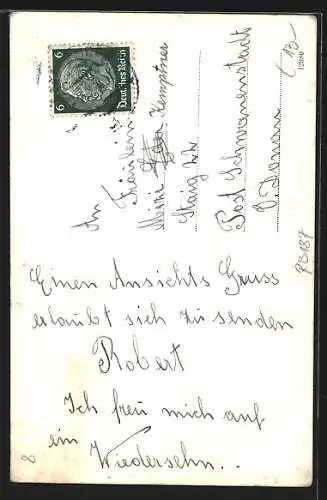 Deutsches Reich
6
6
An Fräulein
Mizi Kemptner
Staig 22
Post Schwanenstadt
O. Donau
13
12980
P3187
Einen Ansichts Gruss
erlaubt sich zu senden
Robert
Ich freu mich auf
ein
Wiedersehn..
8